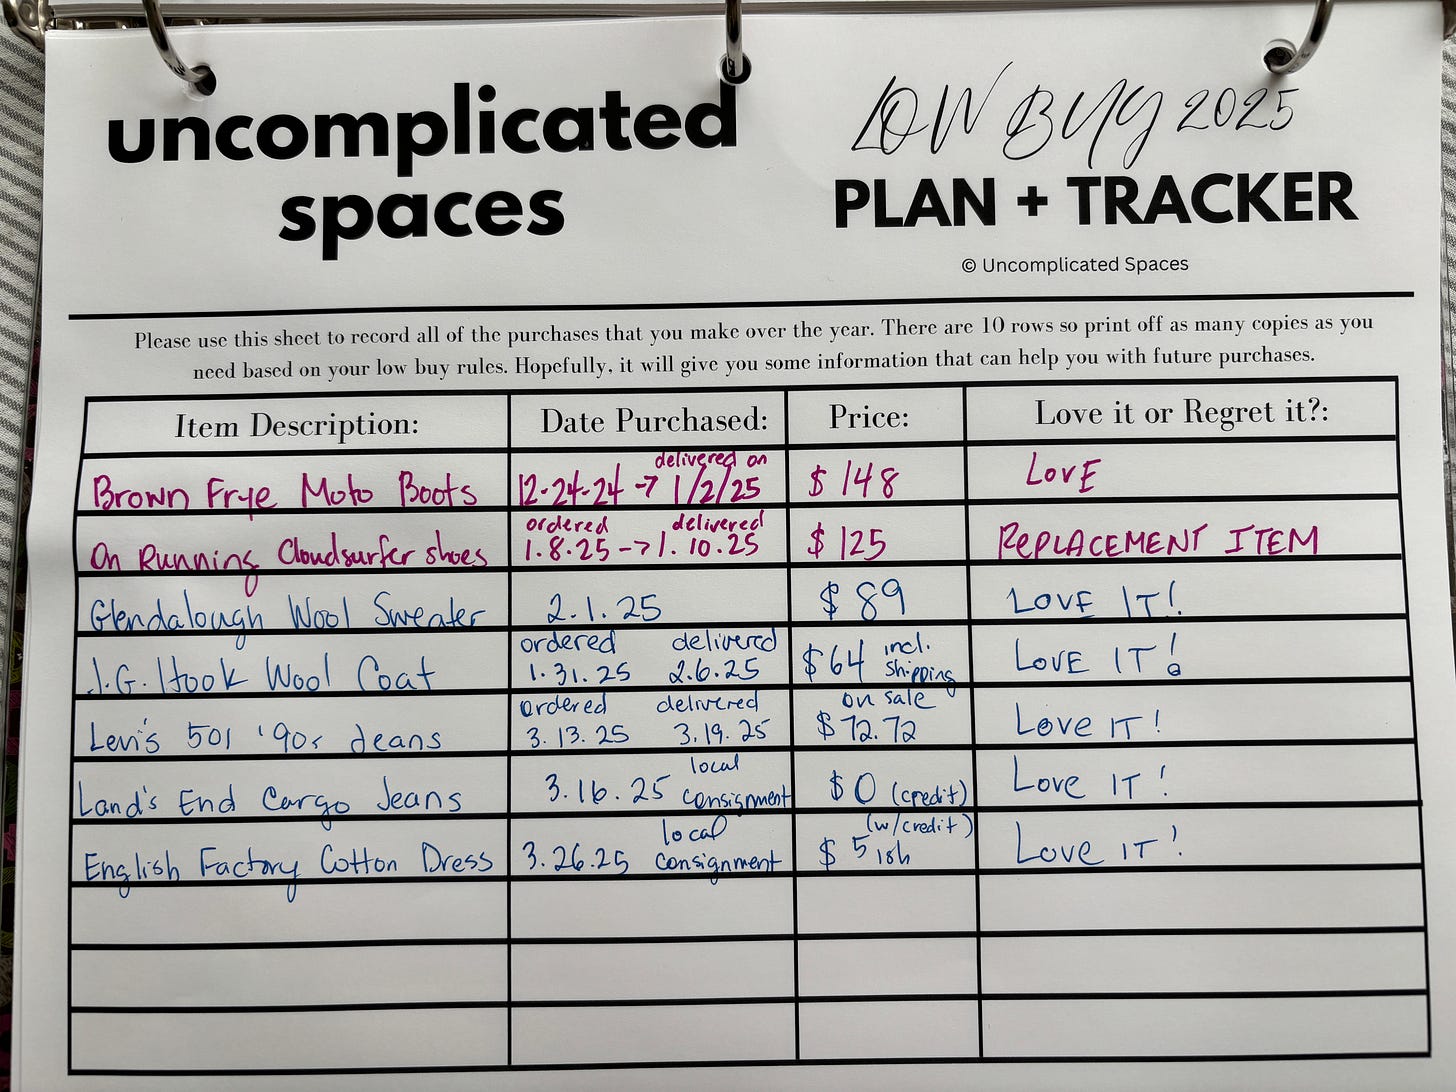 uncomplicated
spaces
LOW BUY 2025
PLAN + TRACKER
© Uncomplicated Spaces
Please use this sheet to record all of the purchases that you make over the year. There are 10 rows so print off as many copies as you
need based on your low buy rules. Hopefully, it will give you some information that can help you with future purchases.
Item Description: Date Purchased: Price: Love it or Regret it?:
delivered on
Brown Frye Moto Boots 12-24-24 → 1/2/25 $148 LOVE
ordered delivered
On Running Cloudsurfer shoes 1.8.25 → 1.10.25 $125 REPLACEMENT ITEM
Glendalough Wool Sweater 2.1.25 $89 LOVE IT!
ordered delivered incl.
J.G. Hook Wool Coat 1.31.25 2.6.25 $64 shipping LOVE IT!
ordered delivered on sale
Levi's 501 '90s Jeans 3.13.25 3.19.25 $72.72 LOVE IT!
local
Land's End Cargo Jeans 3.16.25 consignment $0 (credit) LOVE IT!
local (w/credit)
English Factory Cotton Dress 3.26.25 consignment $5 ish LOVE IT!